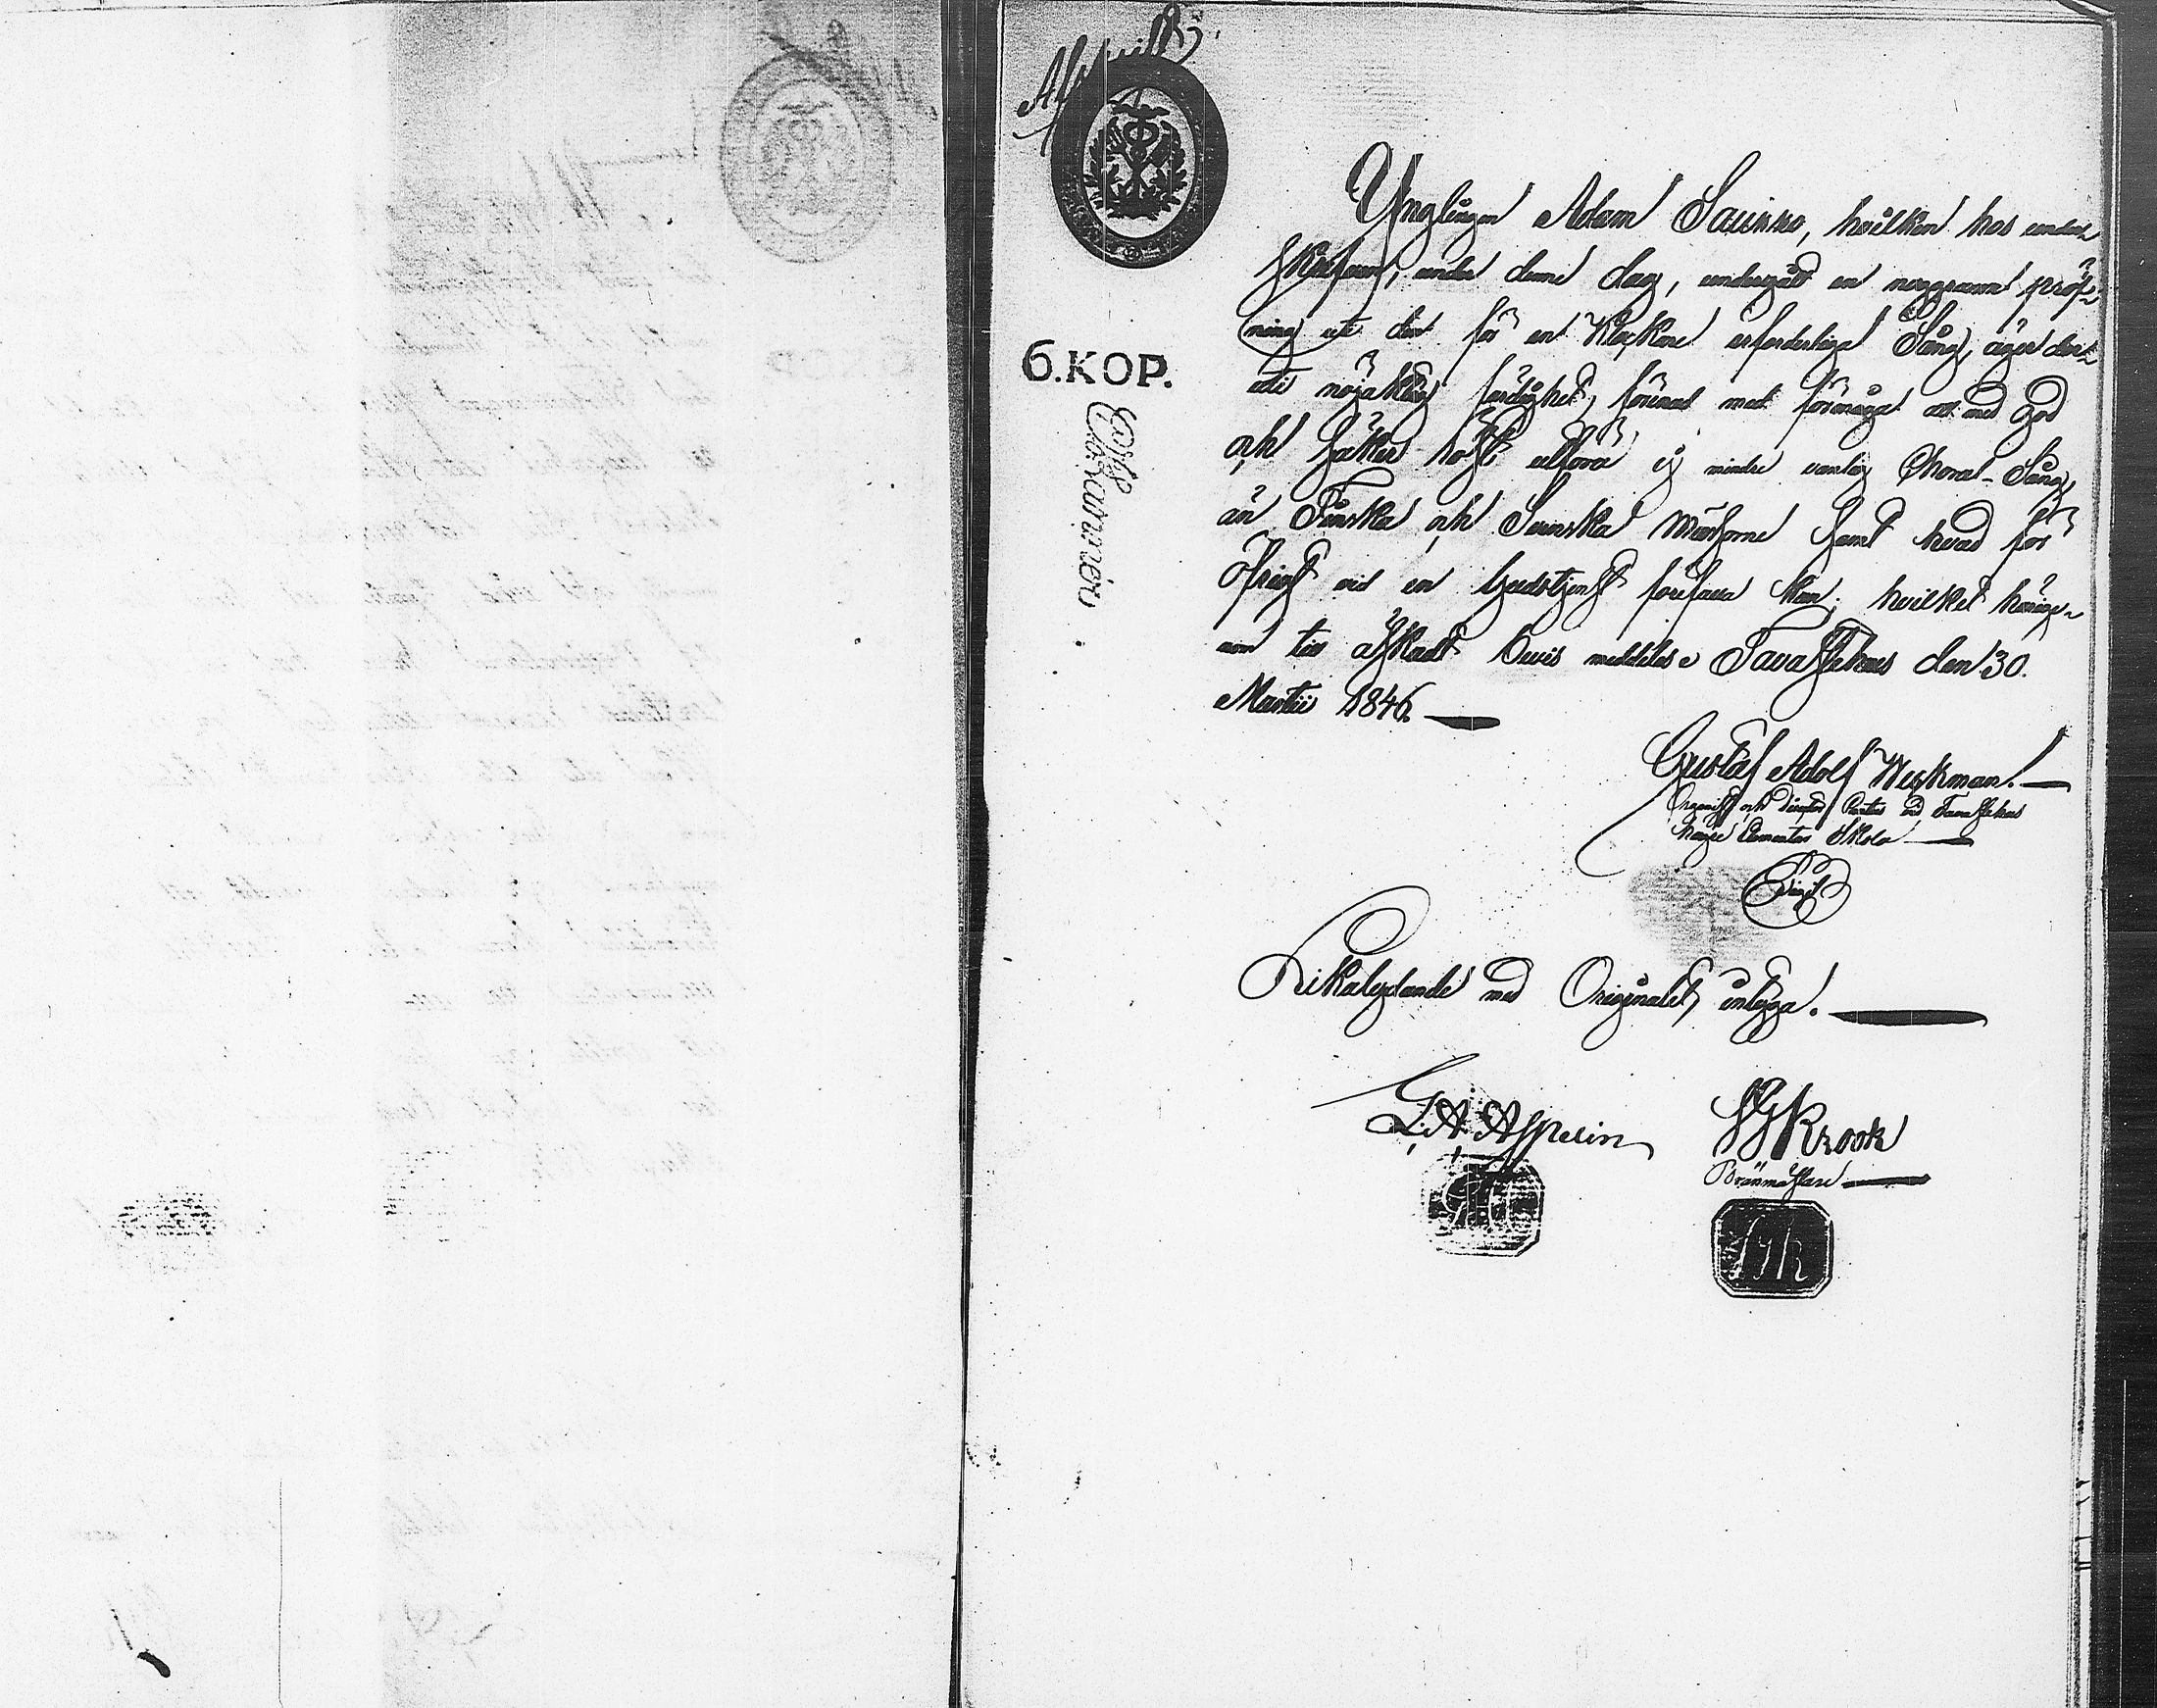 Afskrift.
6.KOP.
Ynglingen Adam Saurro, hvilken hos under-
skrifven, under denne dag, undergått en noggrann pröf-
ning uti den för en Klockare erforderliga Sång, äger der-
uti nöjaktig färdighet, förenad med förmåga att med god
och säker röst utföra ej mindre vanlig Choral-Sång,
än Finska och Svenska Mässorne samt hvad för
öfrigt vid en Gudstjenst förefalla kan; hvilket härige-
nom till äskadt bevis meddelas. Tavastehus den 30.
Martii 1846.
Gustaf Adolf Weckman.
Organist och Director Cantus vid Tavastehus
högre Elementar Skola
Sigill
Lika lydande med Originalet, intyga.
G. A. Asspelin
Krook
Brännmästare